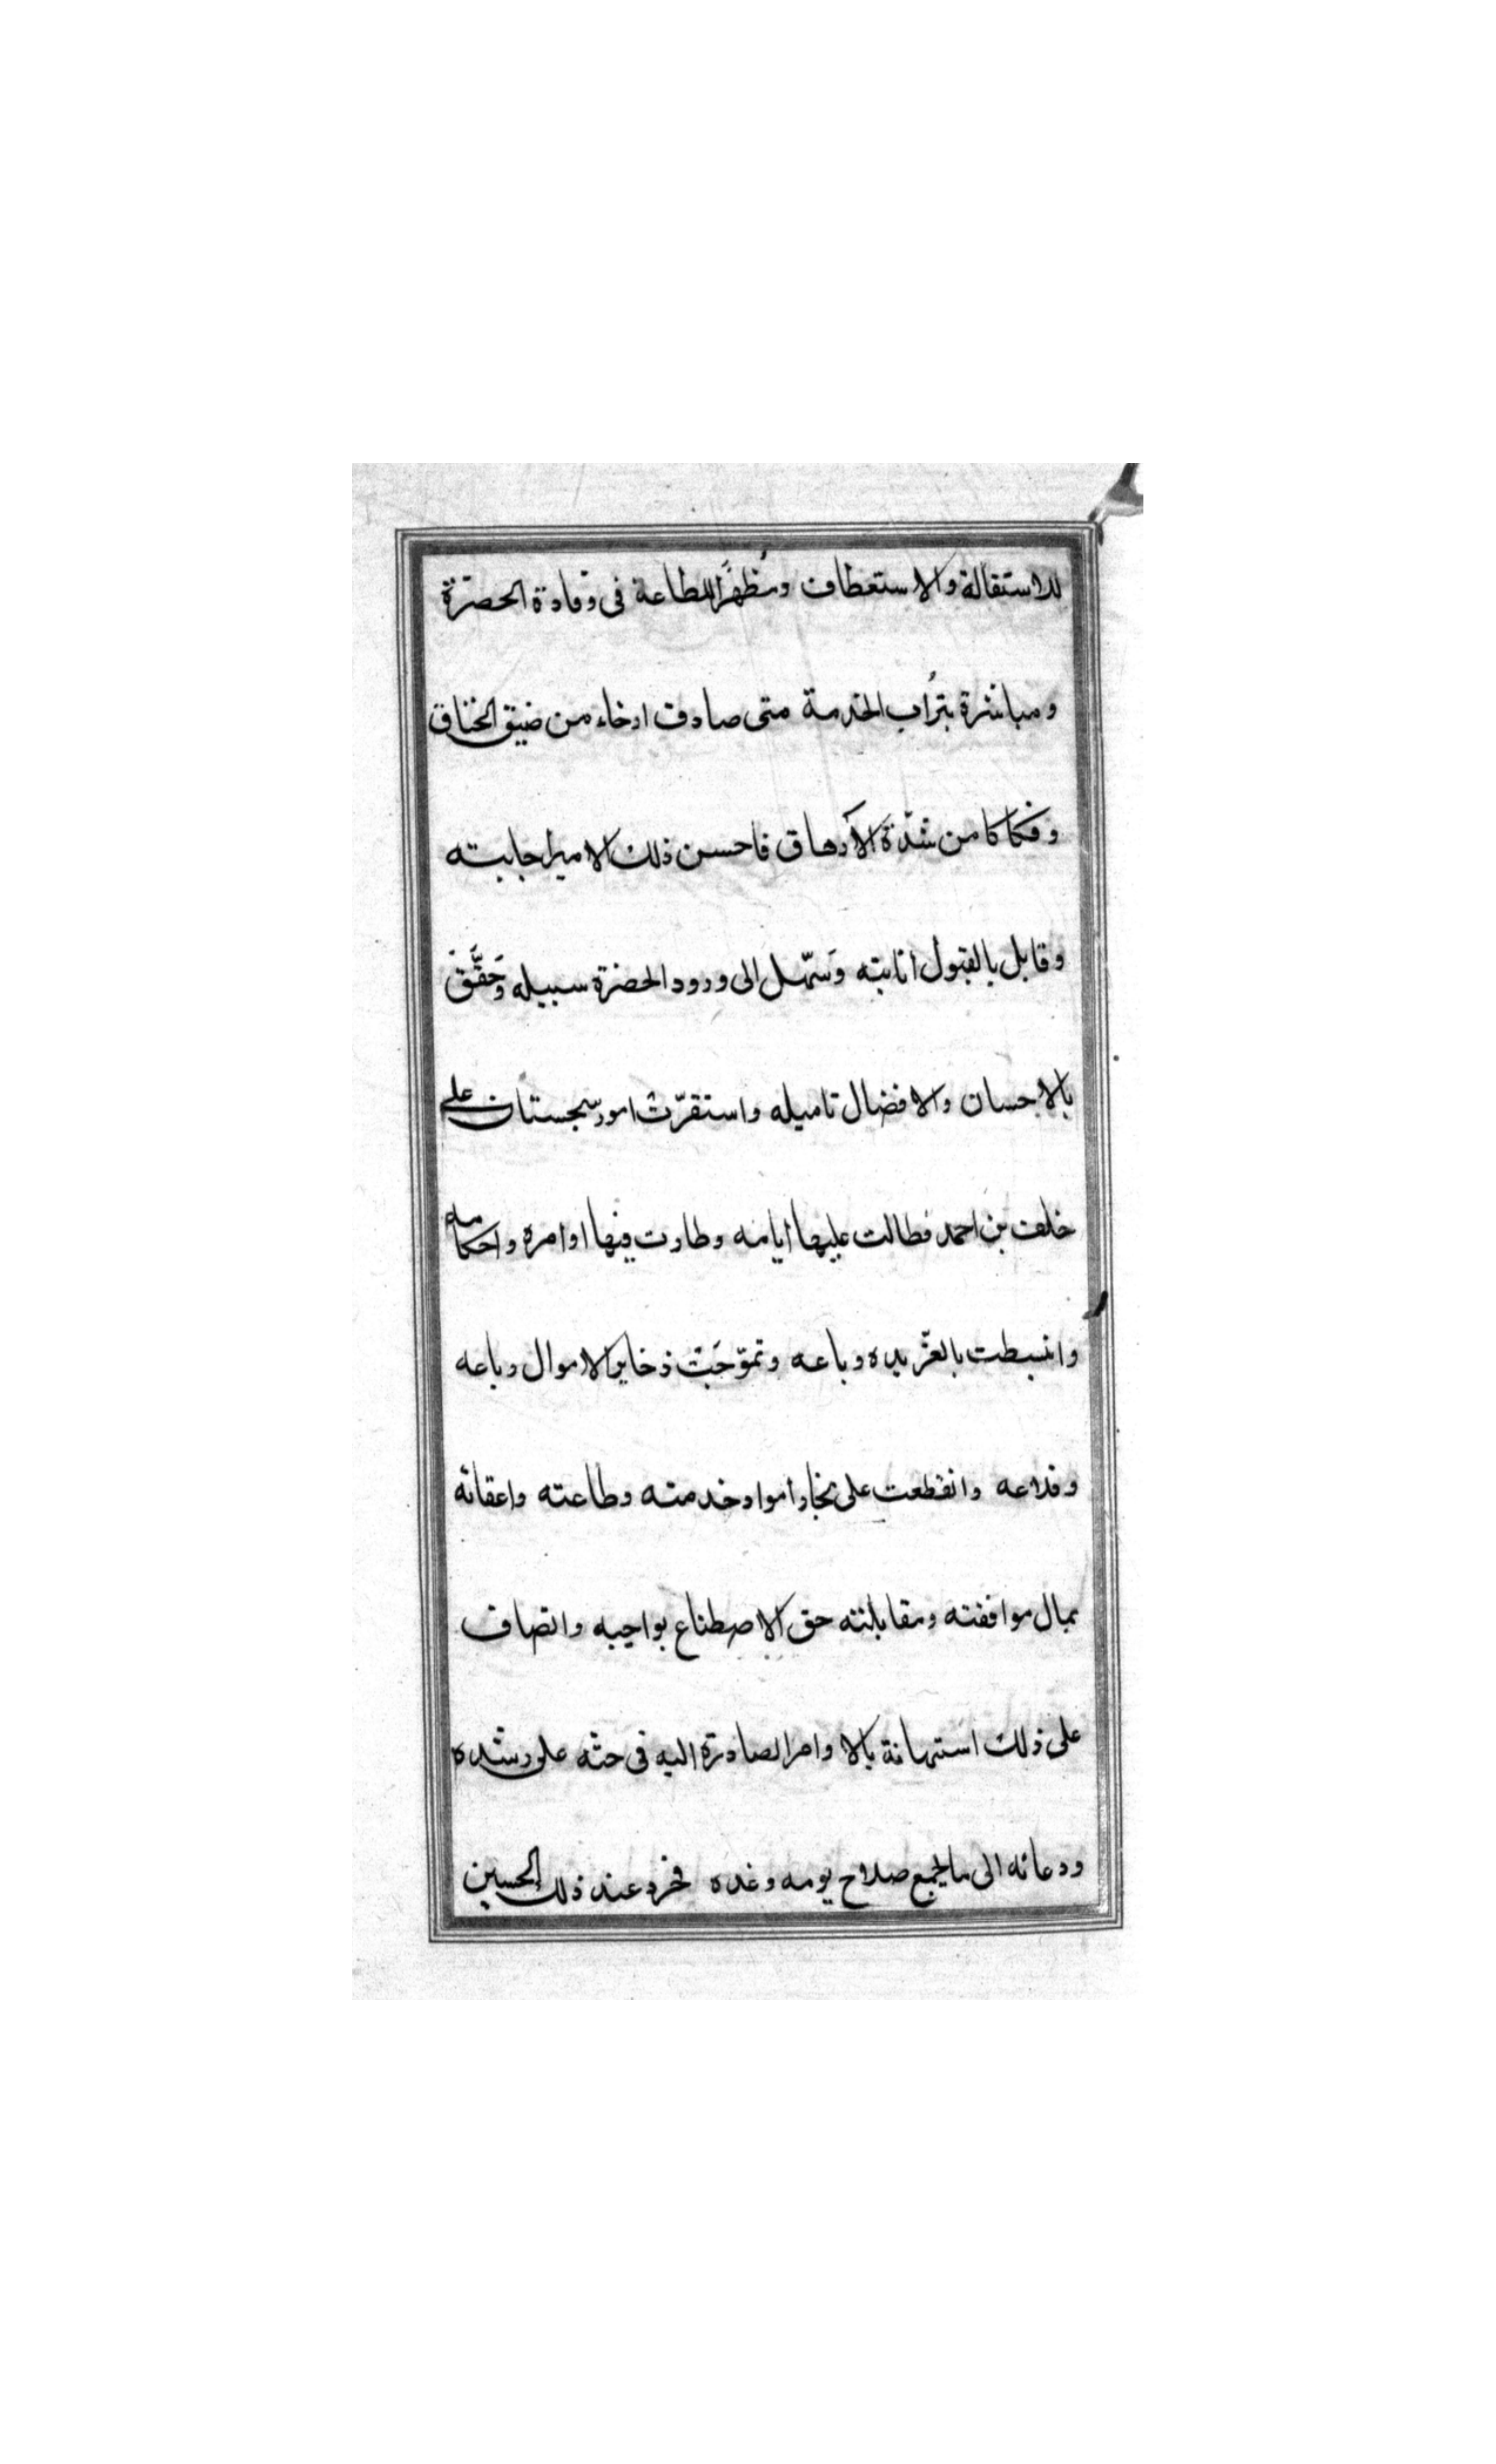 للاستقالة والاستعطاف ومُظهرًا للطاعة فى وفادة الحضرة
ومباشرة بتُراب الخدمة متى صادف ارخاء من ضيق الخناق
وفكاكا من شدّة الأرهاق فاحسن ذلك الامير اجابته
وقابل بالقبول انابته وَسَهّل الى ورود الحضرة سبيله وَحَقَّقَ
بالاحسان والافضال تاميله واستقرّت امور سجستان على
خلف بن احمد فطالت عليها أيامه وطارت فيها اوامره واحكامه
وانبسطت بالعزّ يده وباعه وتموّجَت ذخاير الاموال رباعه
وقلاعه وانقطعت على بخارا مواد خدمته وطاعته واعقاته
بمال موافقته ومقابلته حق الاصطناع بواجبه وانضاف
على ذلك استهانة بالاوامر الصادرة اليه فى حثه على رشده
ودعائه الى ما يجمع صلاح يومه وغده فخرد عند ذلك الحسين